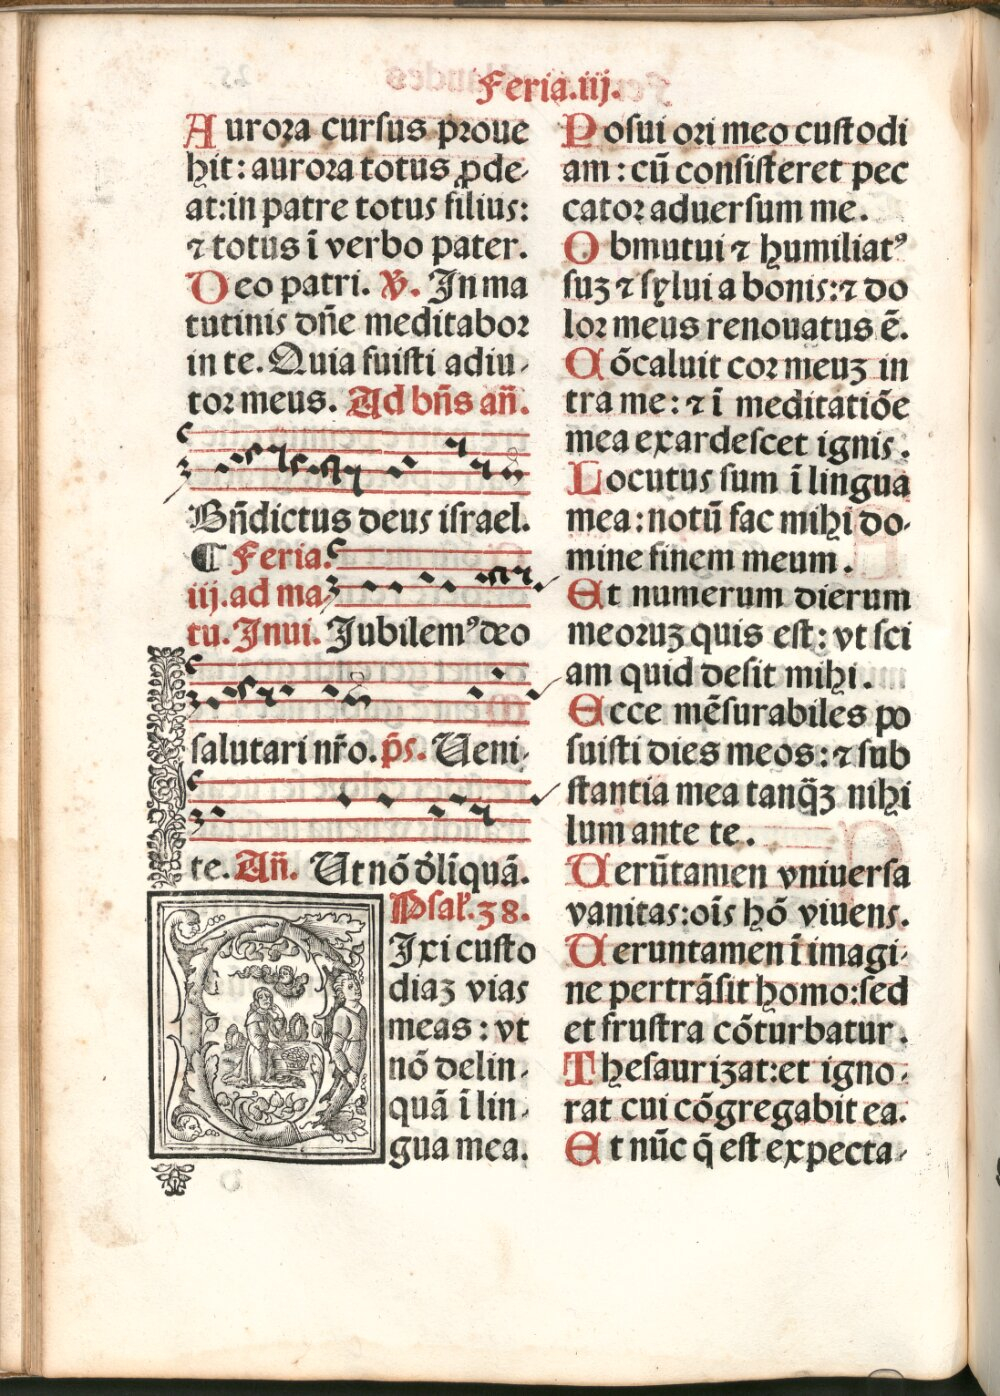 Feria.iij.
Aurora cursus proue
hit: aurora totus ꝓde-
at:in patre totus filius:
⁊ totus ī verbo pater.
Deo patri. ℣. In ma
tutinis dn̄e meditabor
in te. Quia fuisti adiu-
tor meus. Ad bn̄s an̄.
Bn̄dictus deus israel.
¶ Feria.
iij. ad ma
tu. Inui. Jubilemꝰ deo
salutari nr̄o. p̄s. Ueni-
te. An̄. Ut nō dēlīquā.
Psal. 38.
Dixi custo
diaꝫ vias
meas: vt
nō delin-
quā ī lin-
gua mea.
Posui ori meo custodi
am: cū consisteret pec
cator aduersum me.
Obmutui ⁊ humiliatꝰ
suꝫ ⁊ sylui a bonis:⁊ do
lor meus renouatus ē.
Cōcaluit cor meuꝫ in
tra me: ⁊ ī meditatiōe
mea exardescet ignis.
Locutus sum ī lingua
mea: notū fac mihi do-
mine finem meum.
Et numerum dierum
meoruꝫ quis est: vt sci
am quid desit mihi.
Ecce mēsurabiles po
suisti dies meos: ⁊ sub
stantia mea tanq̄ꝫ nihi
lum ante te.
Uerūtamen vniuersa
vanitas: oīs hō viuens.
Ueruntamen ī imagi-
ne pertrāsit homo: sed
et frustra cōturbatur.
Thesaurizat: et igno-
rat cui cōgregabit ea.
Et nūc q̄ est expecta-